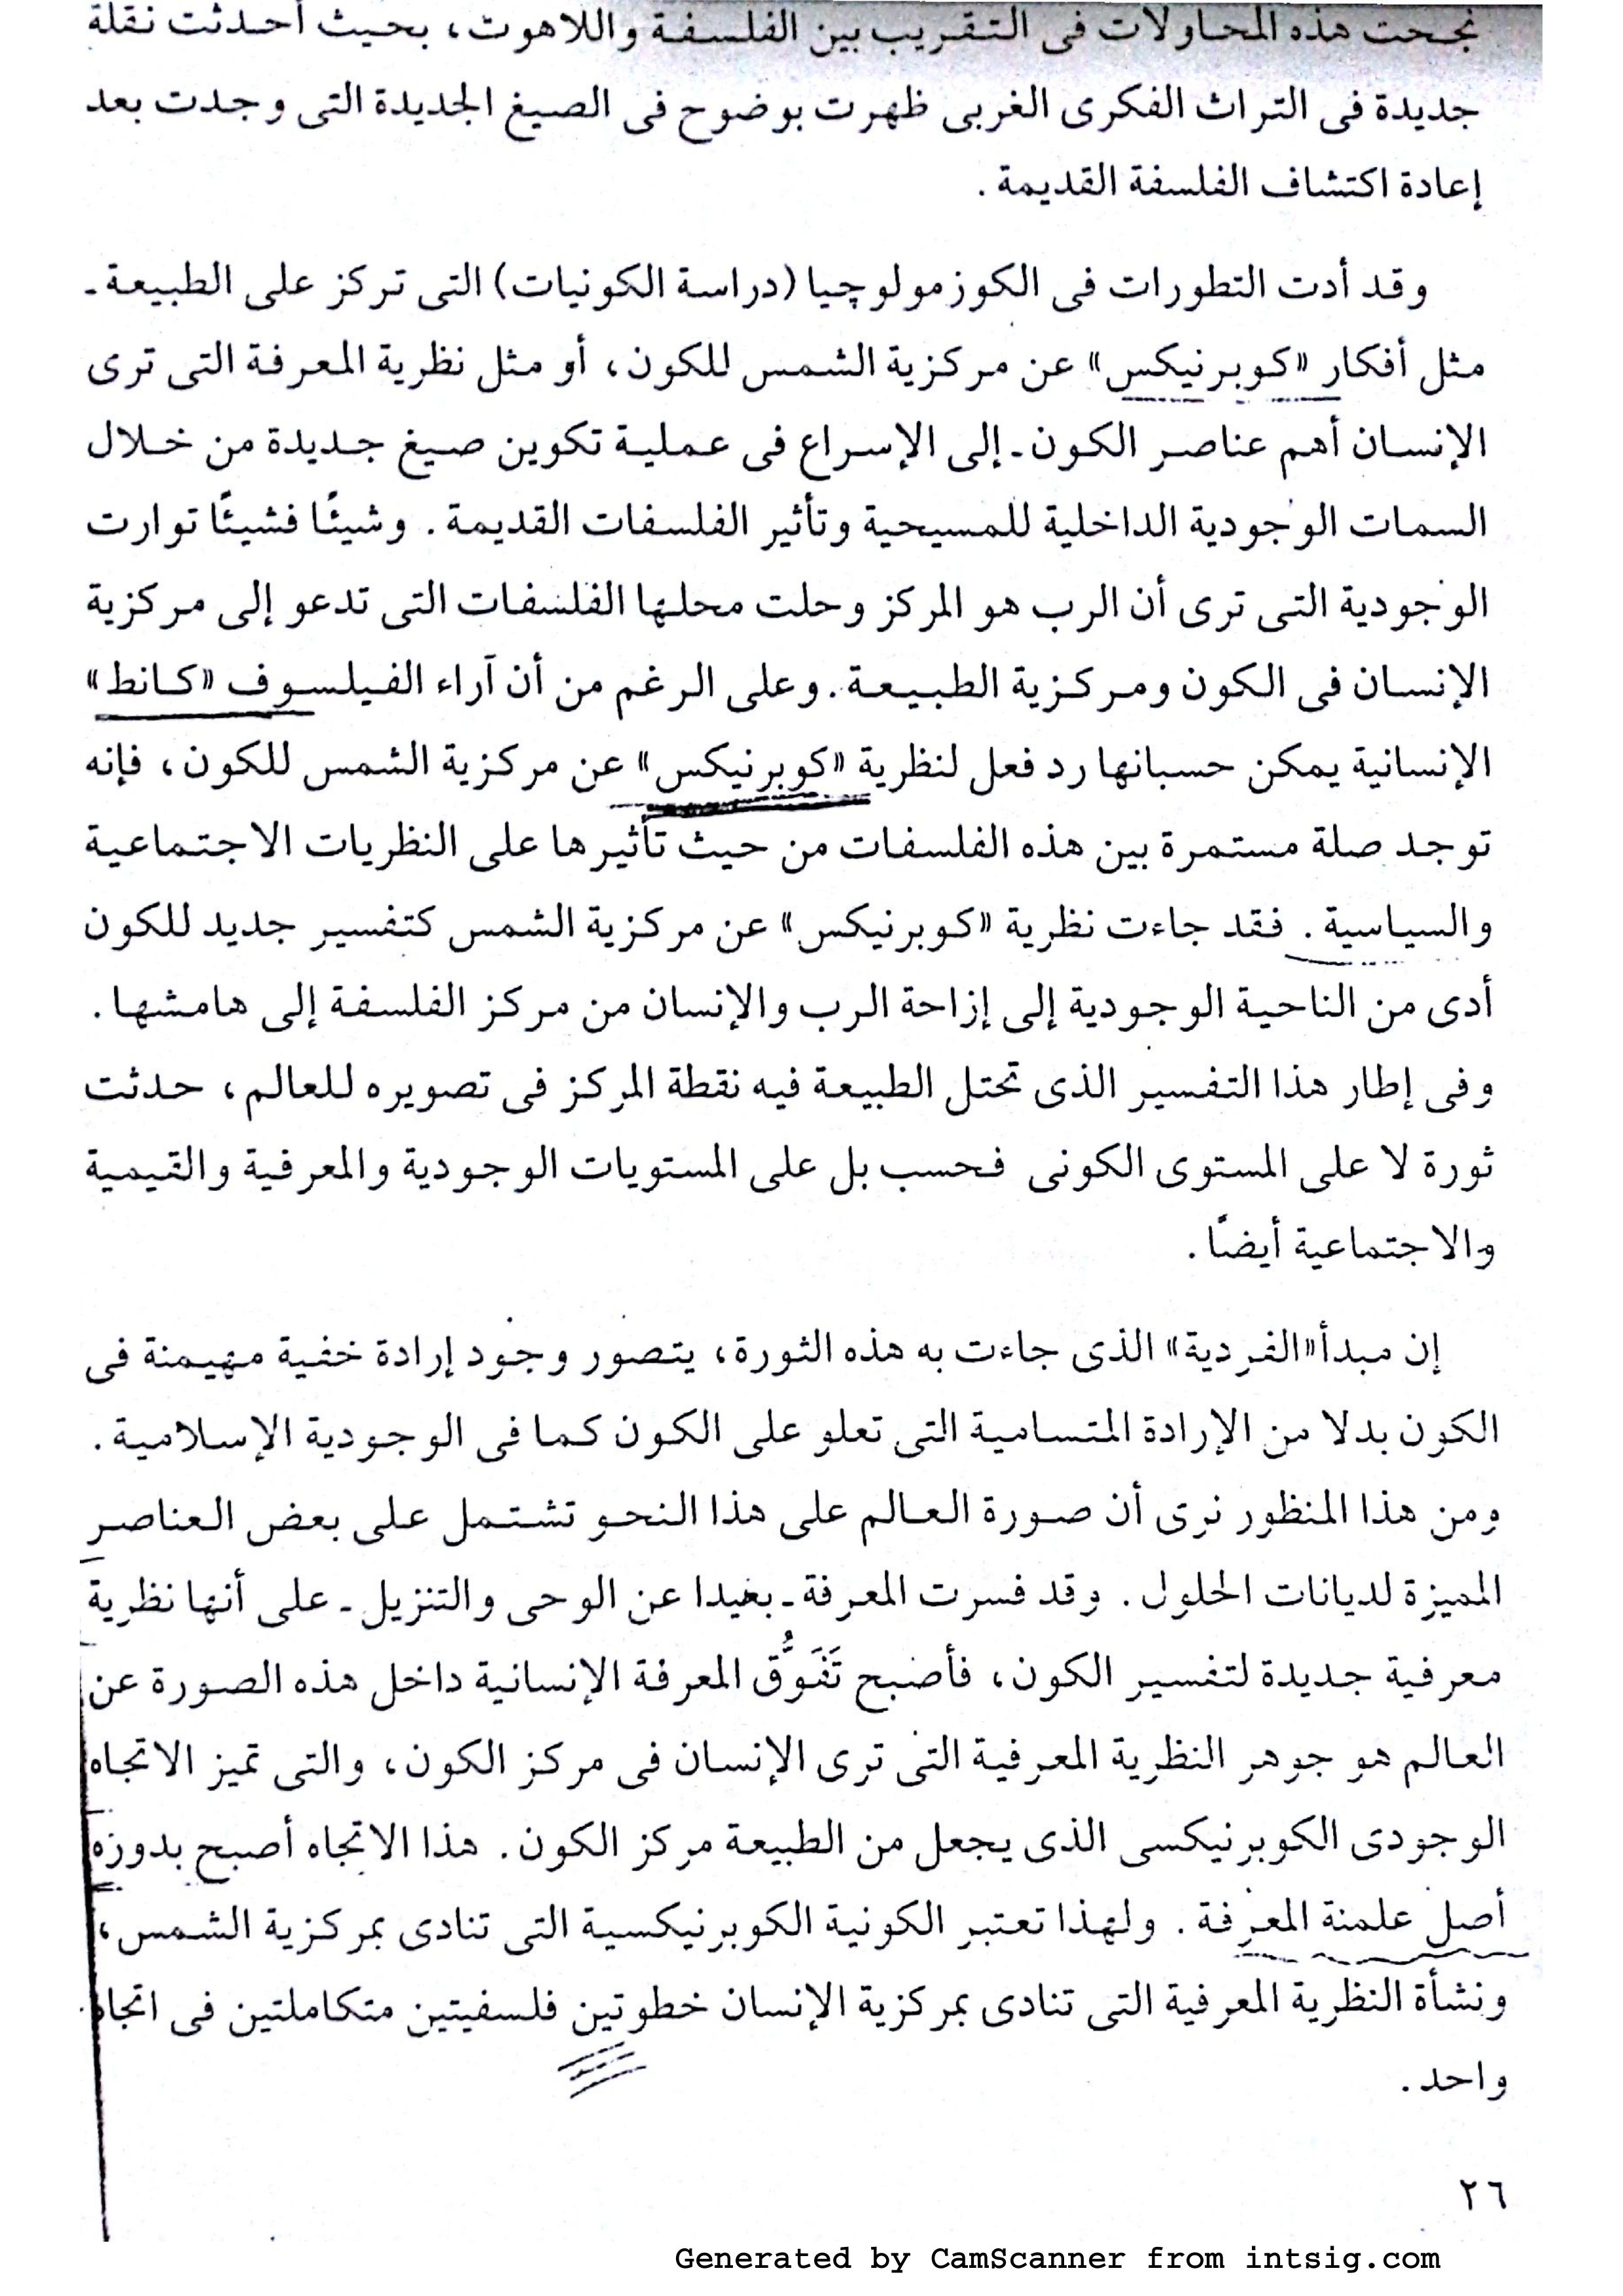 نجحت هذه المحاولات فى التقريب بين الفلسفة واللاهوت، بحيث أحدثت نقلة
جديدة فى التراث الفكرى الغربى ظهرت بوضوح فى الصيغ الجديدة التى وجدت بعد
إعادة اكتشاف الفلسفة القديمة.
وقد أدت التطورات فى الكوزمولوچيا (دراسة الكونيات) التى تركز على الطبيعة ـ
مثل أفكار «كوبرنيكس» عن مركزية الشمس للكون، أو مثل نظرية المعرفة التى ترى
الإنسان أهم عناصر الكون ـ إلى الإسراع فى عملية تكوين صيغ جديدة من خلال
السمات الوجودية الداخلية للمسيحية وتأثير الفلسفات القديمة. وشيئًا فشيئًا توارت
الوجودية التى ترى أن الرب هو المركز وحلت محلها الفلسفات التى تدعو إلى مركزية
الإنسان فى الكون ومركزية الطبيعة. وعلى الرغم من أن آراء الفيلسوف «كانط»
الإنسانية يمكن حسبانها رد فعل لنظرية «كوبرنيكس» عن مركزية الشمس للكون، فإنه
توجد صلة مستمرة بين هذه الفلسفات من حيث تأثيرها على النظريات الاجتماعية
والسياسية. فقد جاءت نظرية «كوبرنيكس» عن مركزية الشمس كتفسير جديد للكون
أدى من الناحية الوجودية إلى إزاحة الرب والإنسان من مركز الفلسفة إلى هامشها.
وفى إطار هذا التفسير الذى تحتل الطبيعة فيه نقطة المركز فى تصويره للعالم، حدثت
ثورة لا على المستوى الكونى فحسب بل على المستويات الوجودية والمعرفية والقيمية
والاجتماعية أيضًا.
إن مبدأ «الفردية» الذى جاءت به هذه الثورة، يتصور وجود إرادة خفية مهيمنة فى
الكون بدلا من الإرادة المتسامية التى تعلو على الكون كما فى الوجودية الإسلامية.
ومن هذا المنظور نرى أن صورة العالم على هذا النحو تشتمل على بعض العناصر
المميزة لديانات الحلول. وقد فسرت المعرفة ـ بعيدا عن الوحى والتنزيل ـ على أنها نظرية
معرفية جديدة لتفسير الكون، فأصبح تَفَوُّق المعرفة الإنسانية داخل هذه الصورة عن
العالم هو جوهر النظرية المعرفية التى ترى الإنسان فى مركز الكون، والتى تميز الاتجاه
الوجودى الكوبرنيكسى الذى يجعل من الطبيعة مركز الكون. هذا الاتجاه أصبح بدوره
أصل علمنة المعرفة. ولهذا تعتبر الكونية الكوبرنيكسية التى تنادى بمركزية الشمس،
ونشأة النظرية المعرفية التى تنادى بمركزية الإنسان خطوتين فلسفيتين متكاملتين فى اتجاه
واحد.
٢٦
Generated by CamScanner from intsig.com